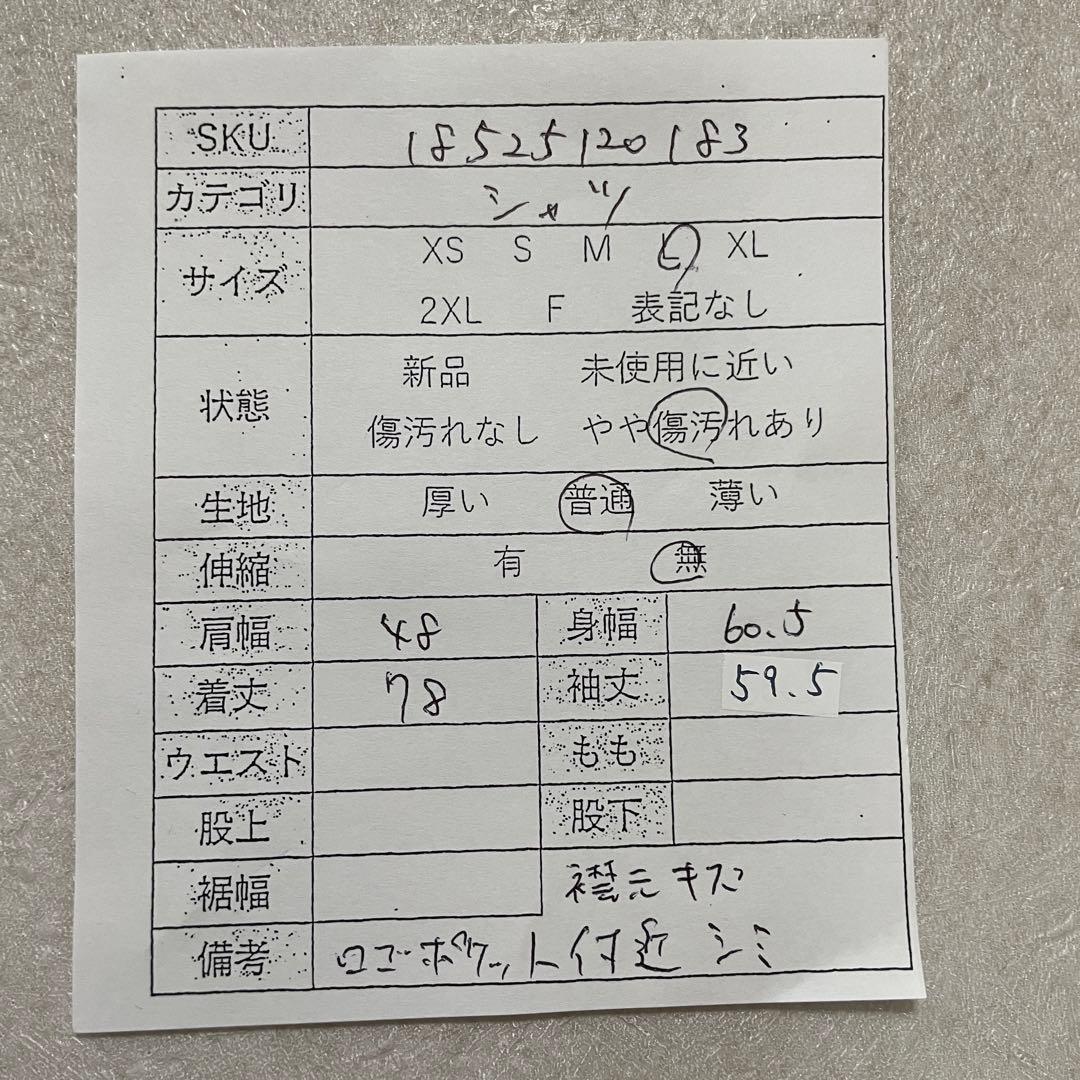 SKU 18525120183
カテゴリ シャツ
サイズ XS S M L XL
2XL F 表記なし
状態 新品 未使用に近い
傷汚れなし やや傷汚れあり
生地 厚い 普通 薄い
伸縮 有 無
肩幅 48 身幅 60.5
着丈 78 袖丈 59.5
ウエスト もも
股上 股下
裾幅 襟元キズ
備考 ロゴ・ポケット付近 シミ